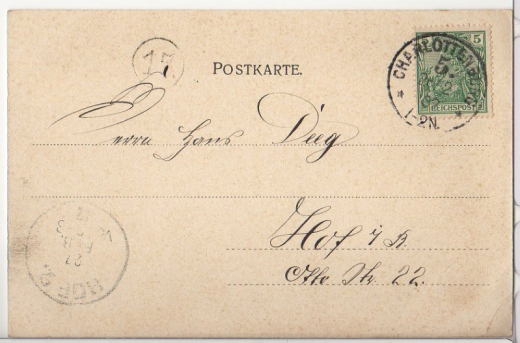 15.
POSTKARTE.
5
CHARLOTTENBURG
5.
1-2N.
REICHSPOST
Herrn Hans
Hof i/B
Otto Str. 22.
HOF
27
FEB